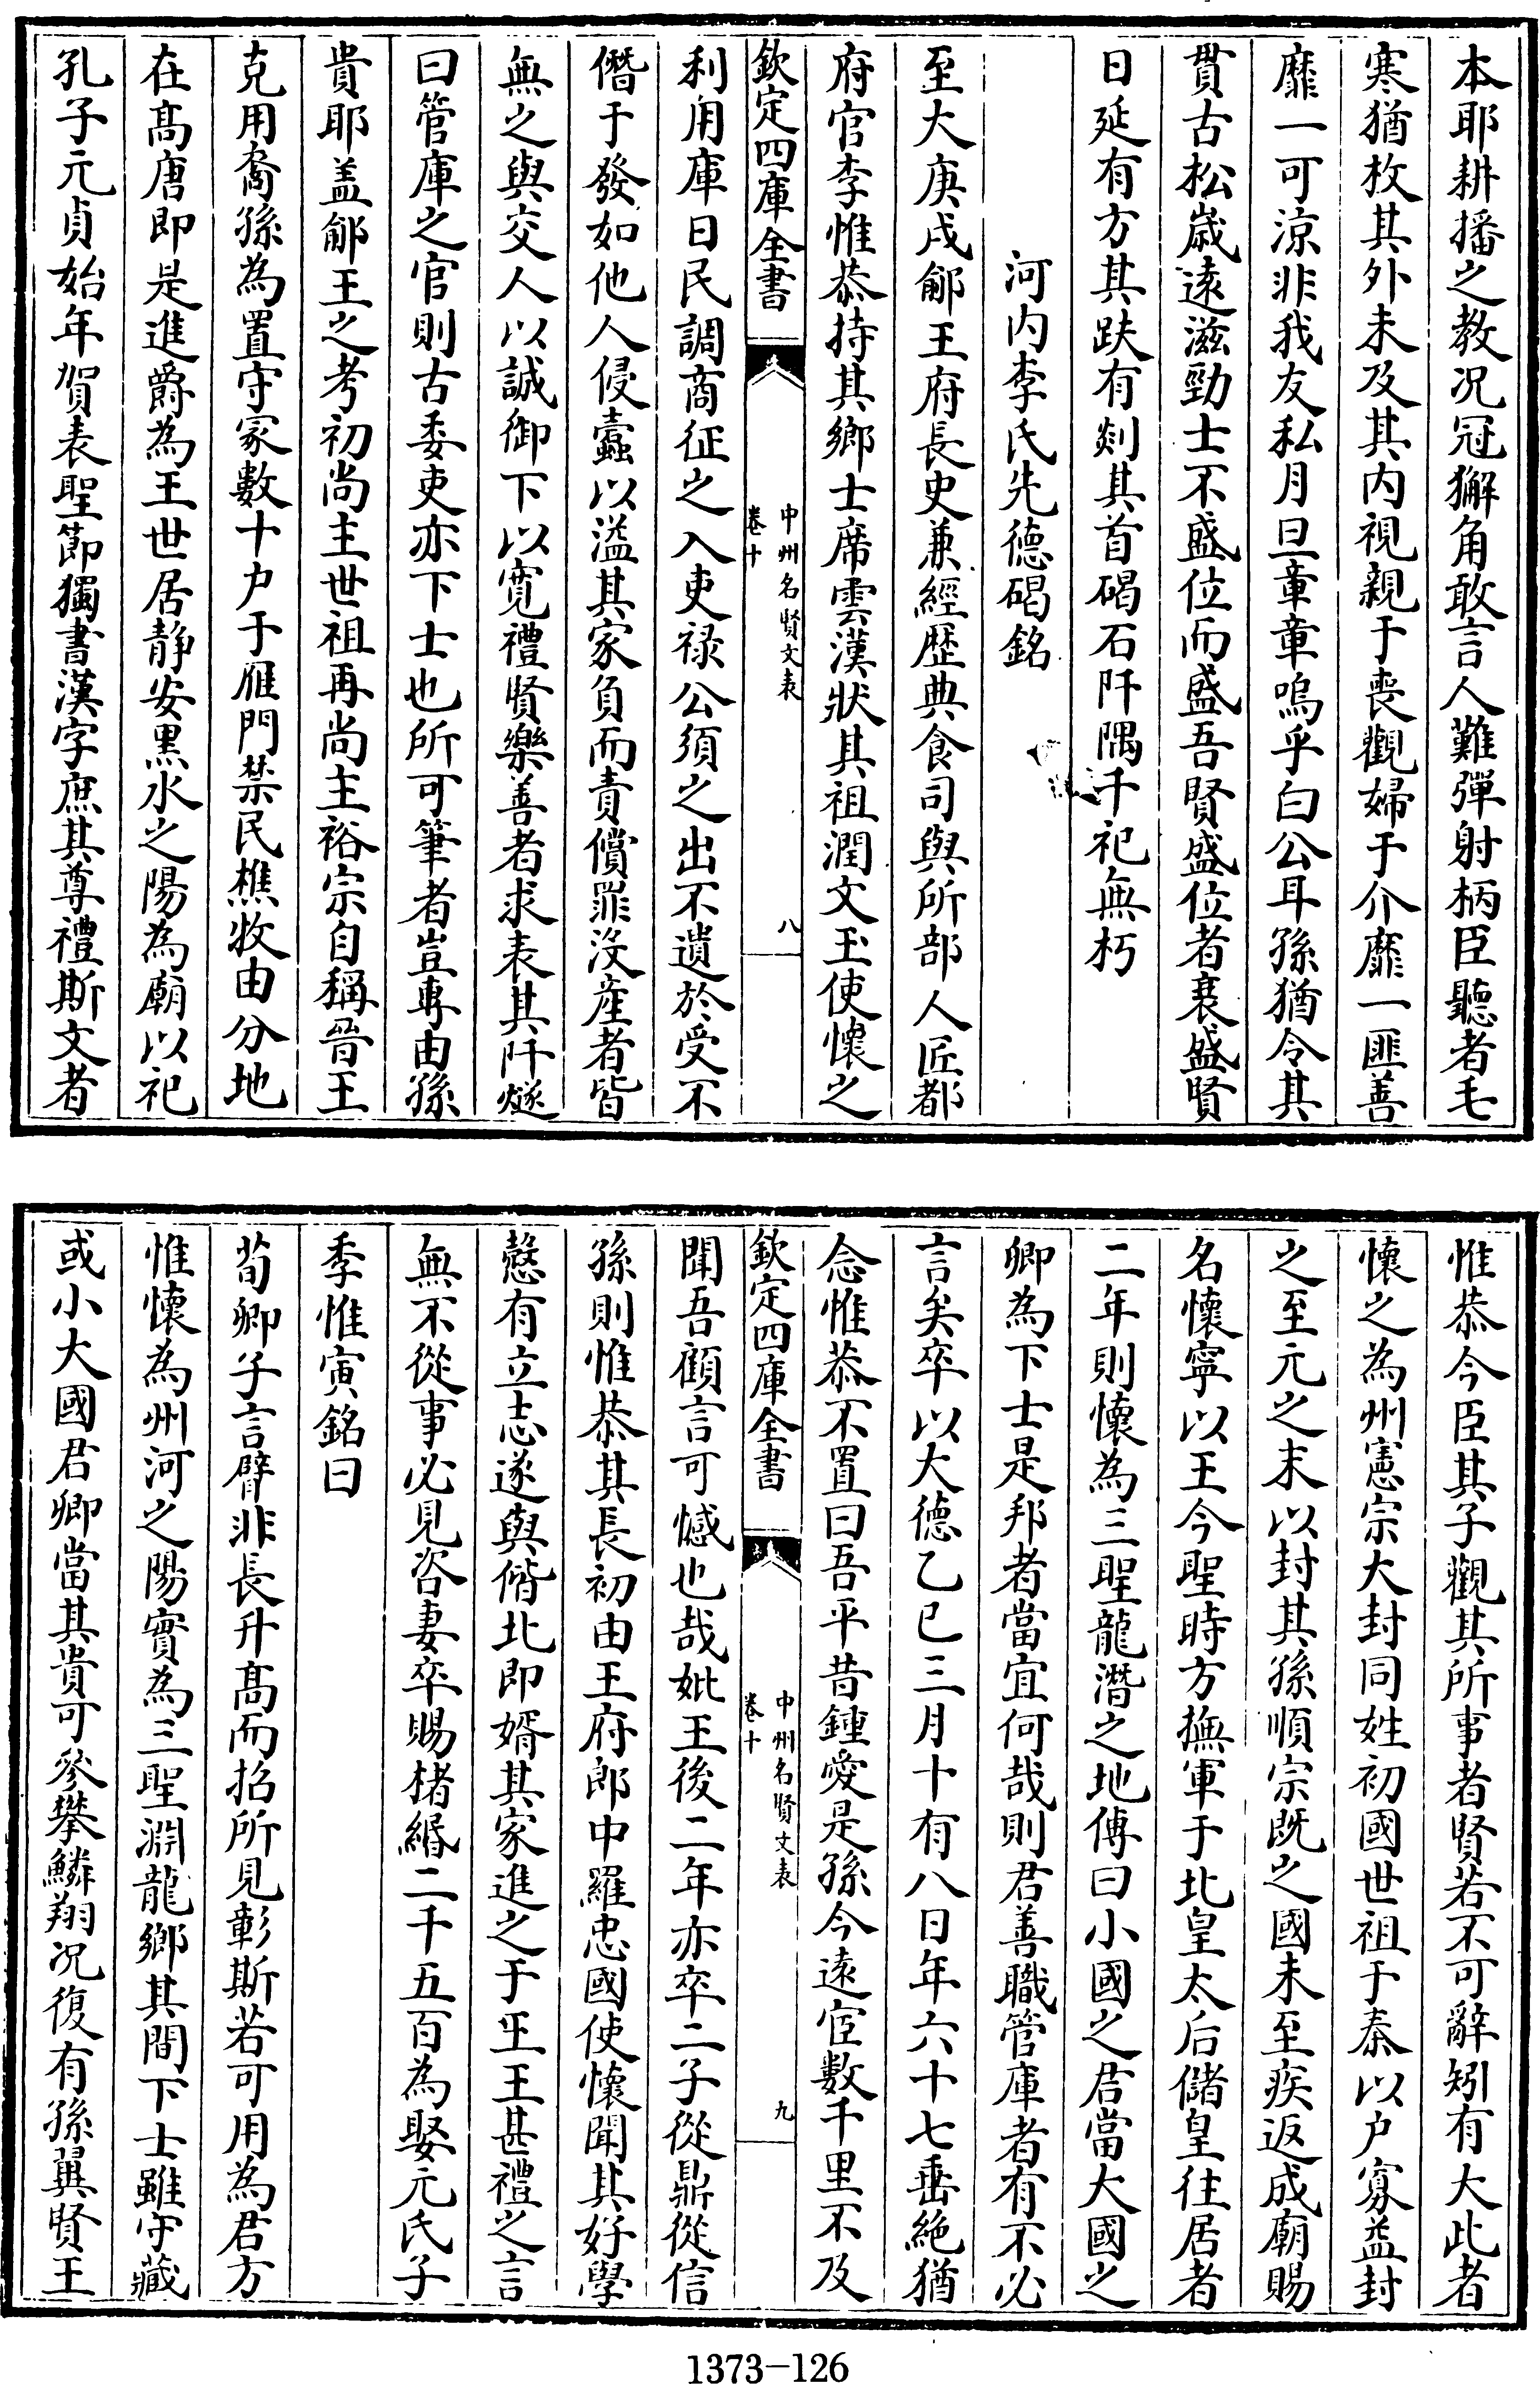 本耶耕播之教况冠獬角敢言人難彈射柄臣聽者毛
寒猶枚其外未及其内視親于喪觀婦于介靡一匪善
靡一可涼非我友私月旦章章嗚乎白公耳孫猶令其
貫古松歲遠滋勁士不盛位而盛吾賢盛位者衰盛賢
日延有方其趺有剡其首碣石阡隅千祀無朽
河内李氏先德碣銘
至大庚戌鄃王府長史兼經歷典食司與所部人匠都
府官李惟恭持其鄉士席雲漢狀其祖潤文王使懷之
欽定四庫全書
中州名賢文表
卷十
八
利用庫日民調商征之入吏禄公須之出不遺於受不
僭于發如他人侵蠹以溢其家負而責償罪沒産者皆
無之與交人以誠御下以寛禮賢樂善者求表其阡燧
曰管庫之官則古委吏亦下士也所可筆者豈專由孫
貴耶盖鄃王之考初尚主世祖再尚主裕宗自稱晉王
克用裔孫為置守冢數十户于雁門禁民樵牧由分地
在髙唐即是進爵為王世居静安黒水之陽為廟以祀
孔子元貞始年賀表聖節獨書漢字庶其尊禮斯文者
惟恭今臣其子觀其所事者賢若不可辭矧有大此者
懷之為州憲宗大封同姓初國世祖于秦以户寡益封
之至元之末以封其孫順宗既之國未至疾返成廟賜
名懷寧以王今聖時方撫軍于北皇太后儲皇往居者
二年則懷為三聖龍潛之地傳曰小國之君當大國之
卿為下士是邦者當宜何哉則君善職管庫者有不必
言矣卒以大德乙巳三月十有八日年六十七垂絶猶
念惟恭不置曰吾平昔鍾愛是孫今遠宦數千里不及
欽定四庫全書
中州名賢文表
卷十
九
聞吾顧言可憾也哉妣王後二年亦卒二子從鼎從信
孫則惟恭其長初由王府郎中羅忠國使懷聞其好學
慤有立志遂與偕北即婿其家進之于王王甚禮之言
無不從事必見咨妻卒賜楮緡二千五百為娶元氏子
季惟寅銘曰
荀卿子言臂非長升髙而招所見彰斯若可用為君方
惟懷為州河之陽實為三聖淵龍鄉其間下士雖守藏
或小大國君卿當其貴可參攀鱗翔况復有孫翼賢王
1373-126